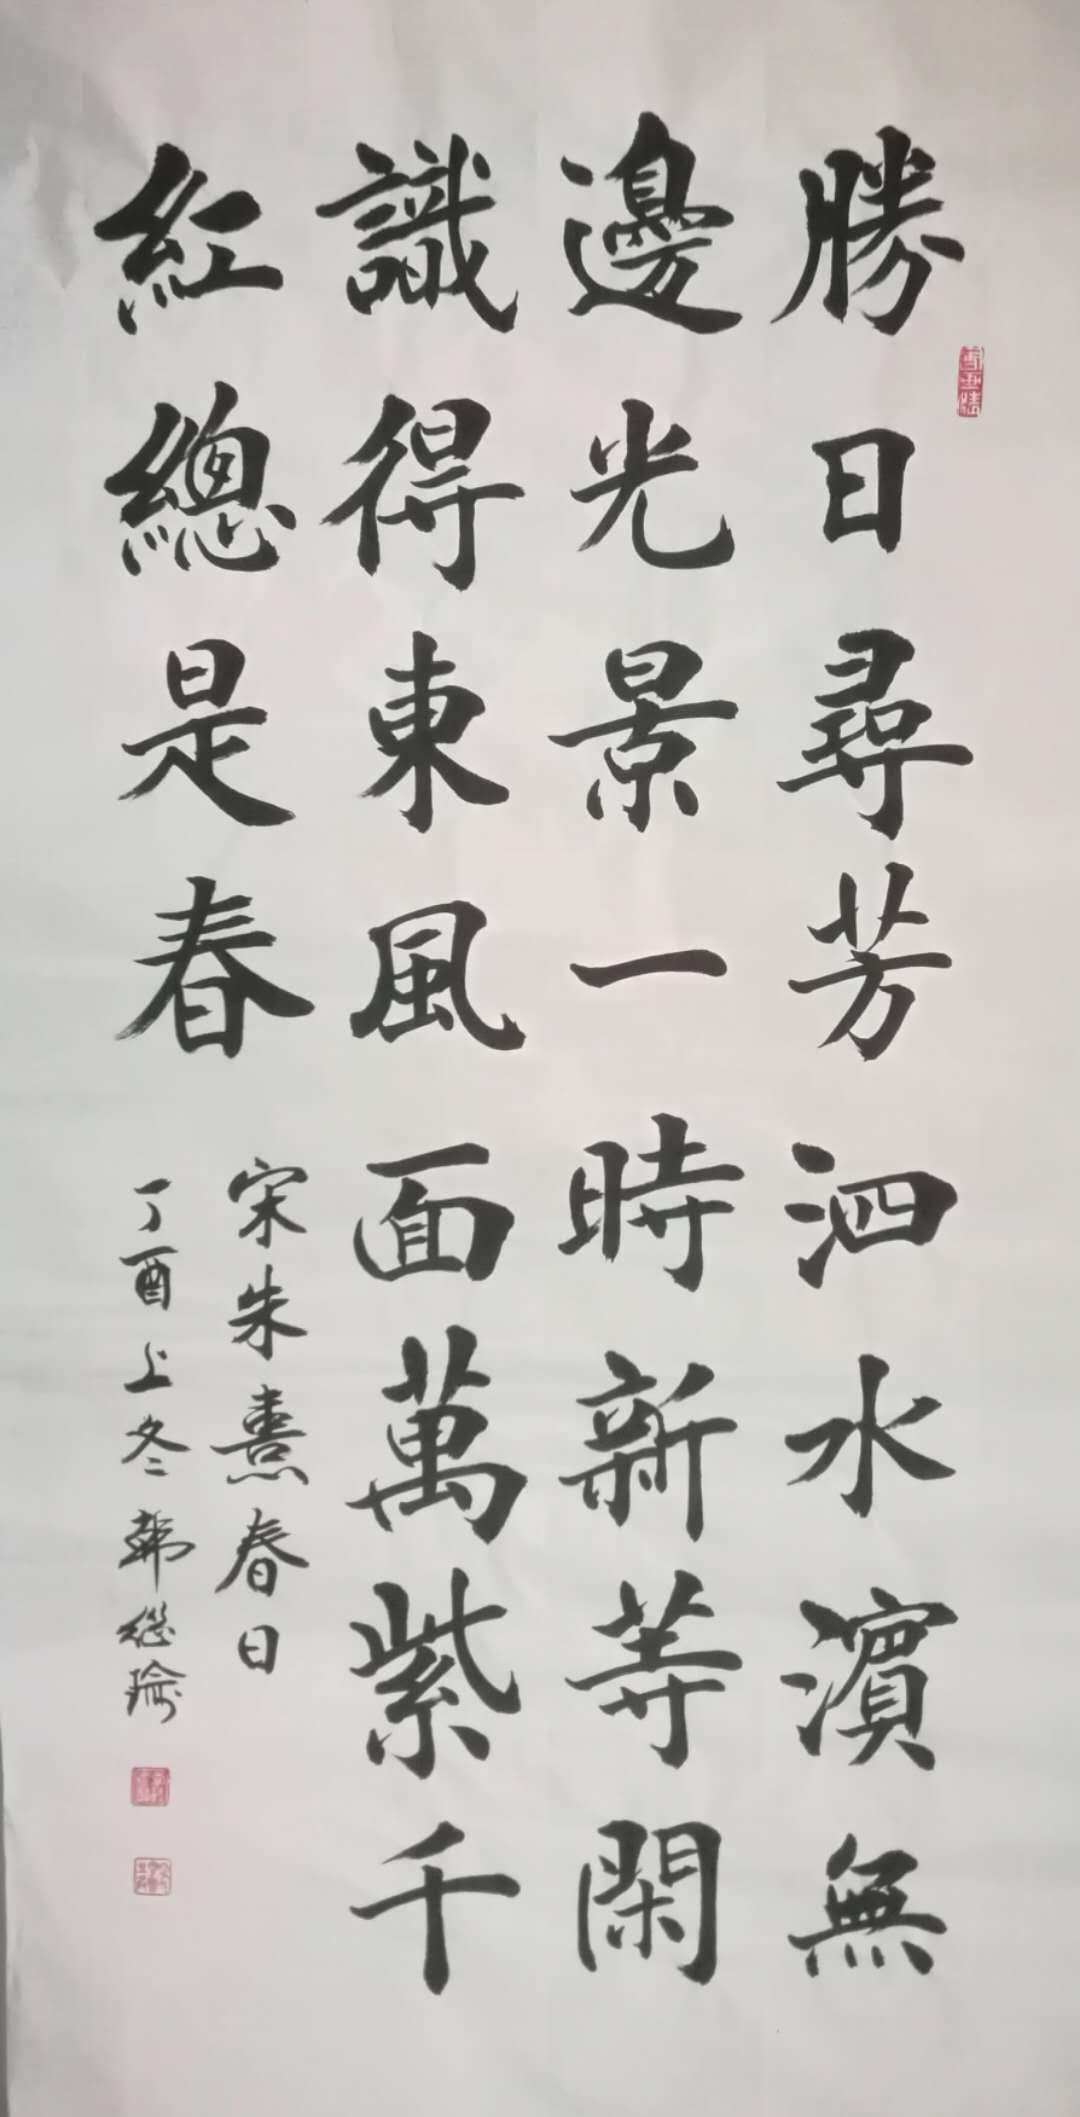 勝日尋芳泗水濱無
邊光景一時新等閑
識得東風面萬紫千
紅總是春
宋朱熹春日
丁酉上冬韩继瑜